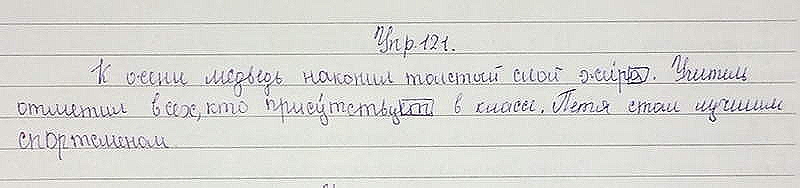 Упр. 121.
К осени медведь накопил толстый слой жира. Учитель
отметил всех, кто присутствует в классе. Петя стал лучшим
спортсменом